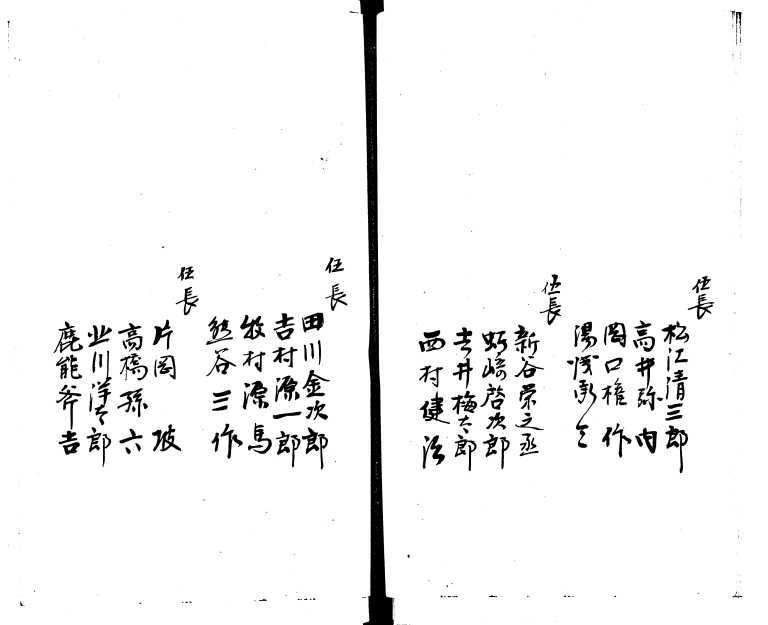 伍長
松江清三郎
高井弥内
岡口権作
湯浅
伍長
新谷栄之丞
蚵崎啓次郎
吉井梅太郎
西村健治
伍長
田川金次郎
吉村源一郎
牧村源馬
熊谷三作
伍長
片岡 彼
高橋孫六
北川洋太郎
鹿能斧吉